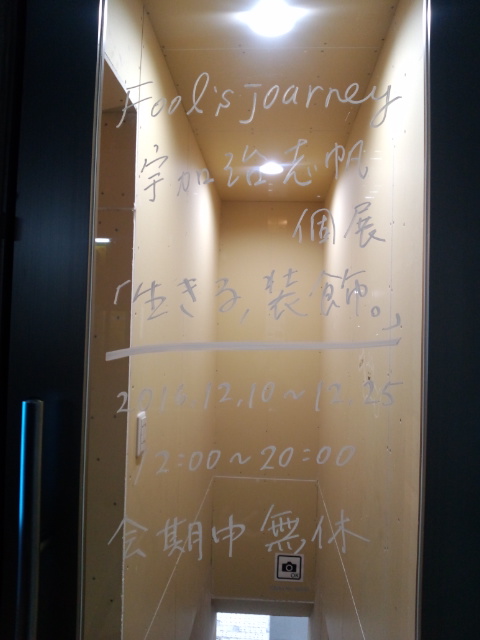 Fool's journey
宇加治志帆
個展
「生きる,装飾。」
2016.12.10~12.25
12:00~20:00
会期中無休